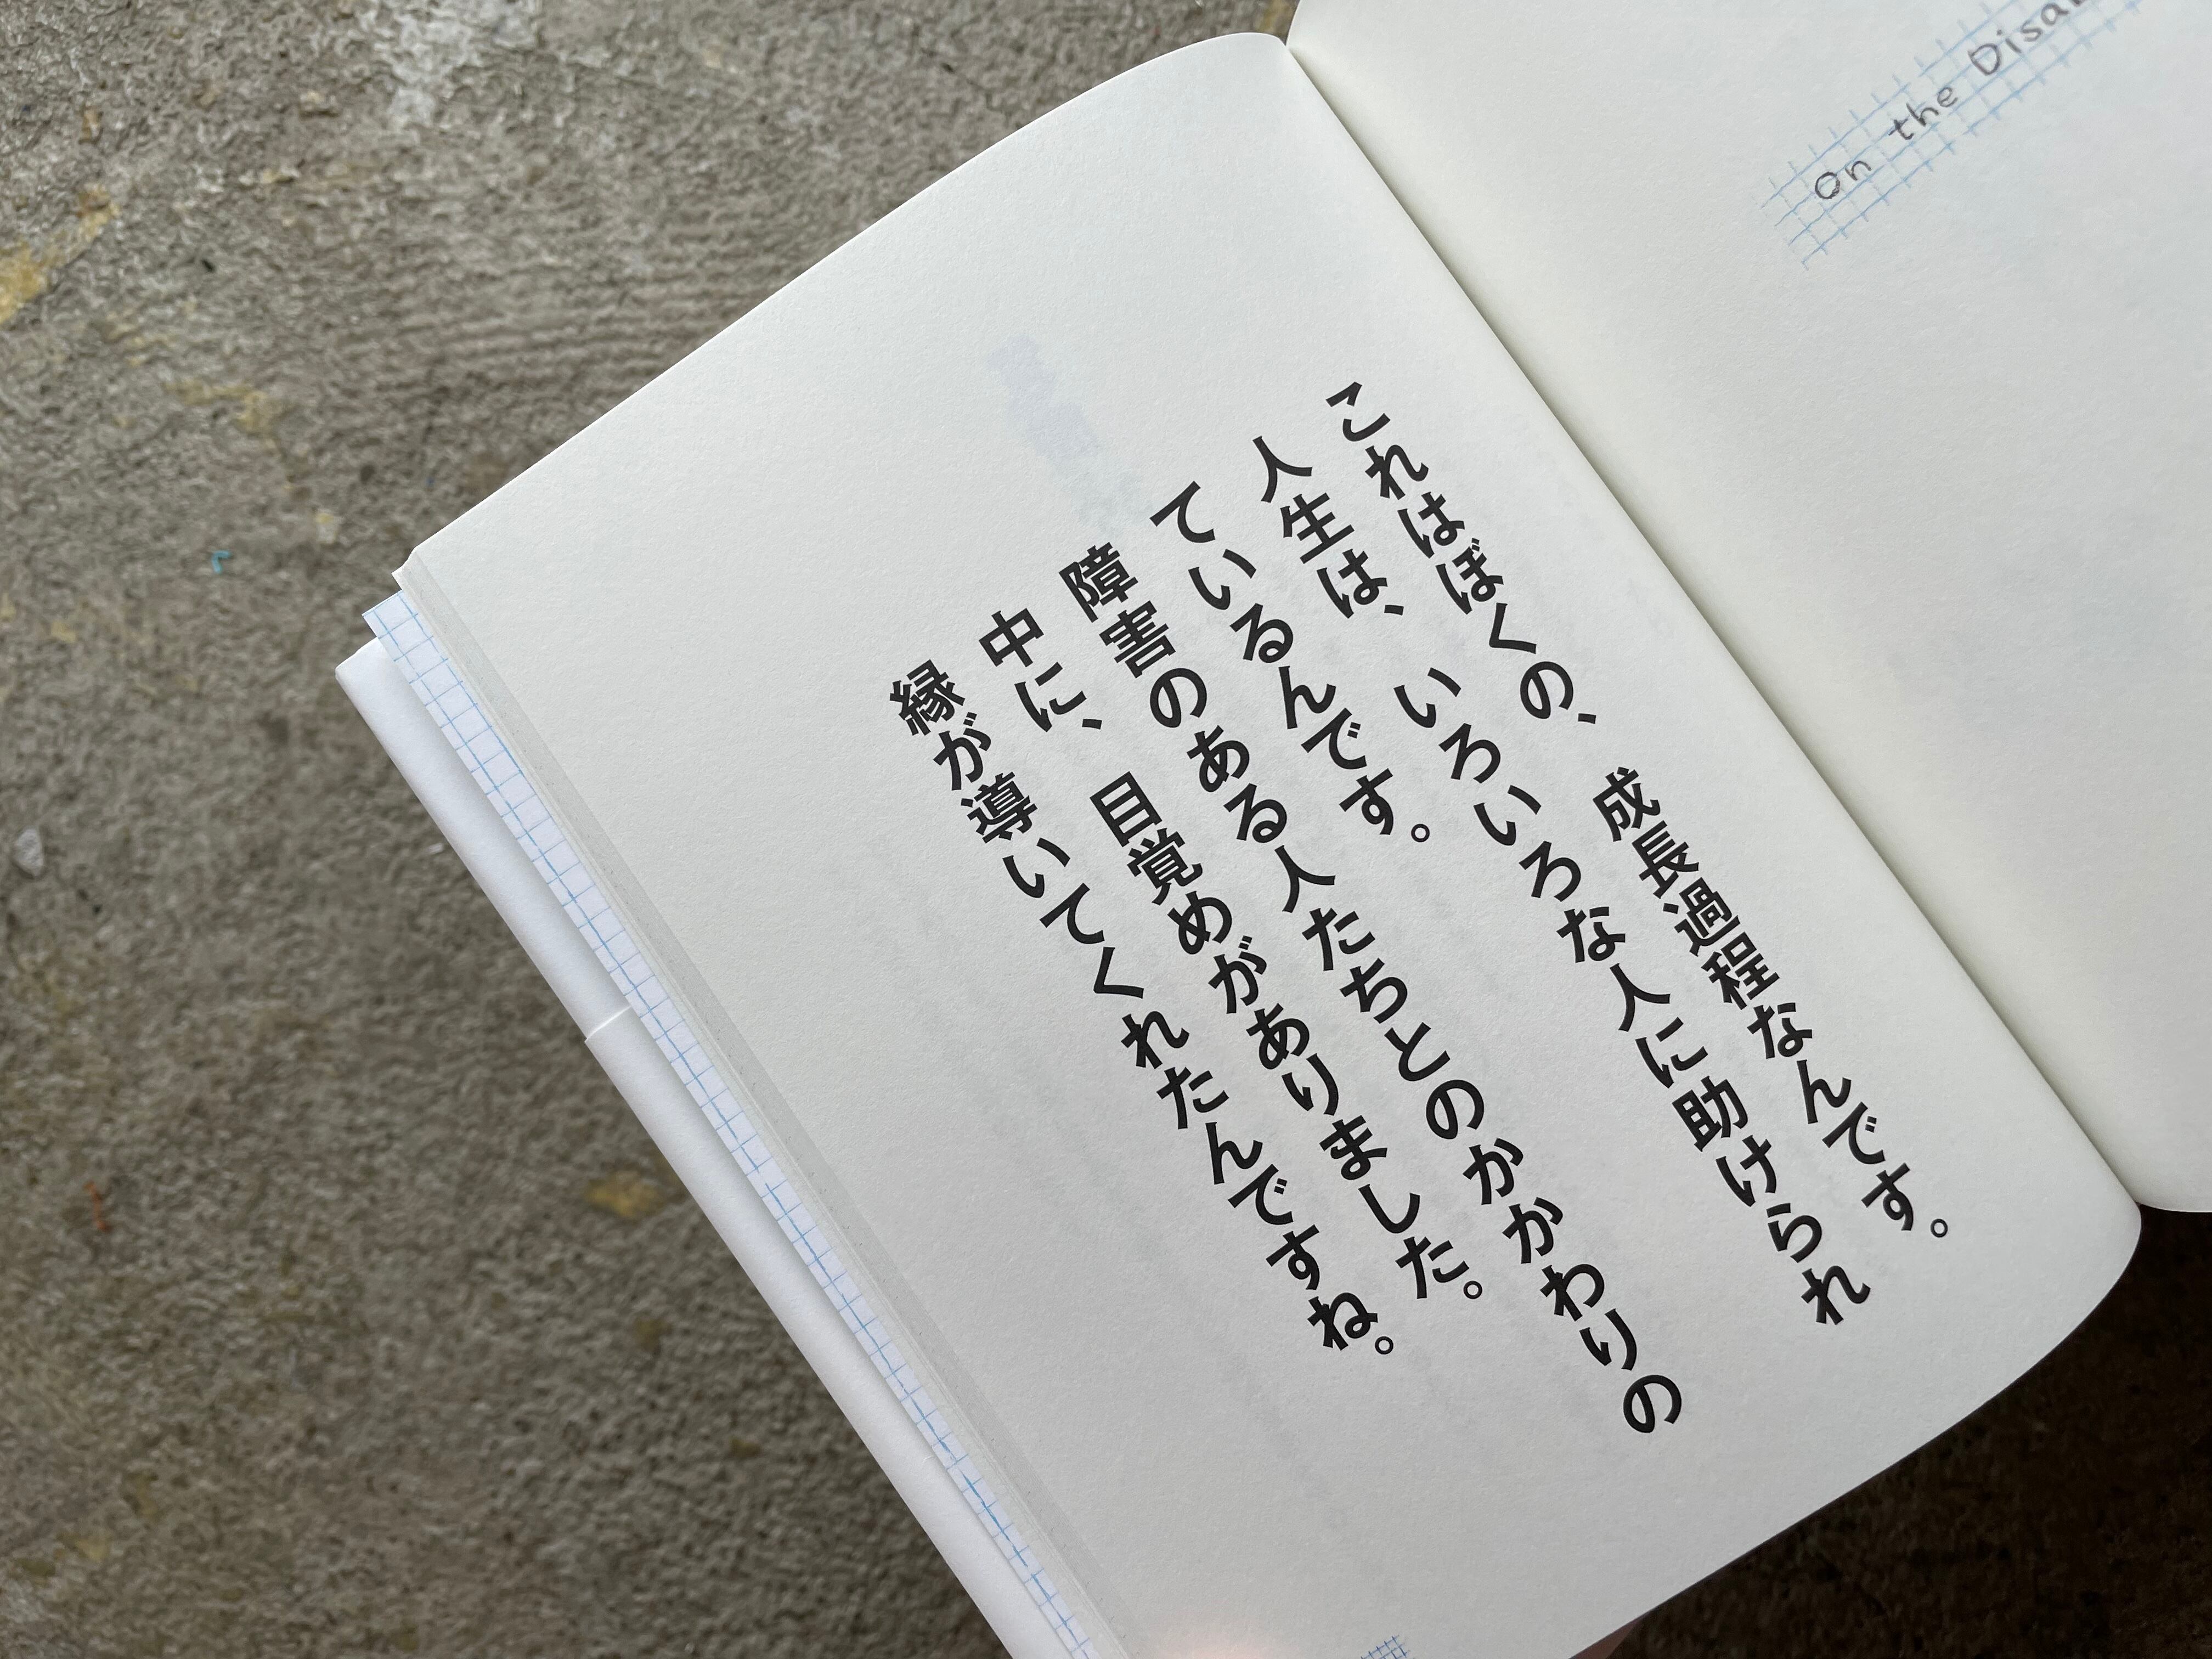 これはぼくの、成長過程なんです。
人生は、いろいろな人に助けられ
ているんです。
障害のある人たちとのかかわりの
中に、目覚めがありました。
縁が導いてくれたんですね。
On the